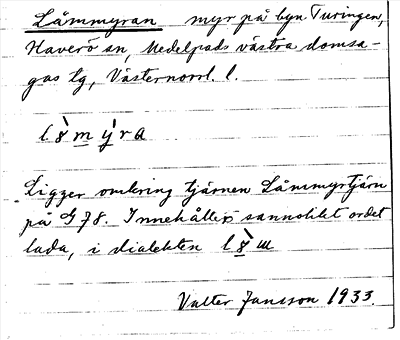 Låmmyran myr på byn Turingen,
Haverö sn, Medelpads västra domsa-
gas tg, Västernorrl. l.
l8̀m ýra
Ligger omkring tjärnen Låmmyrtjärn
på G 78. Innehåller sannolikt ordet
lada, i dialekten l8̀m
Valter Jansson 1933.